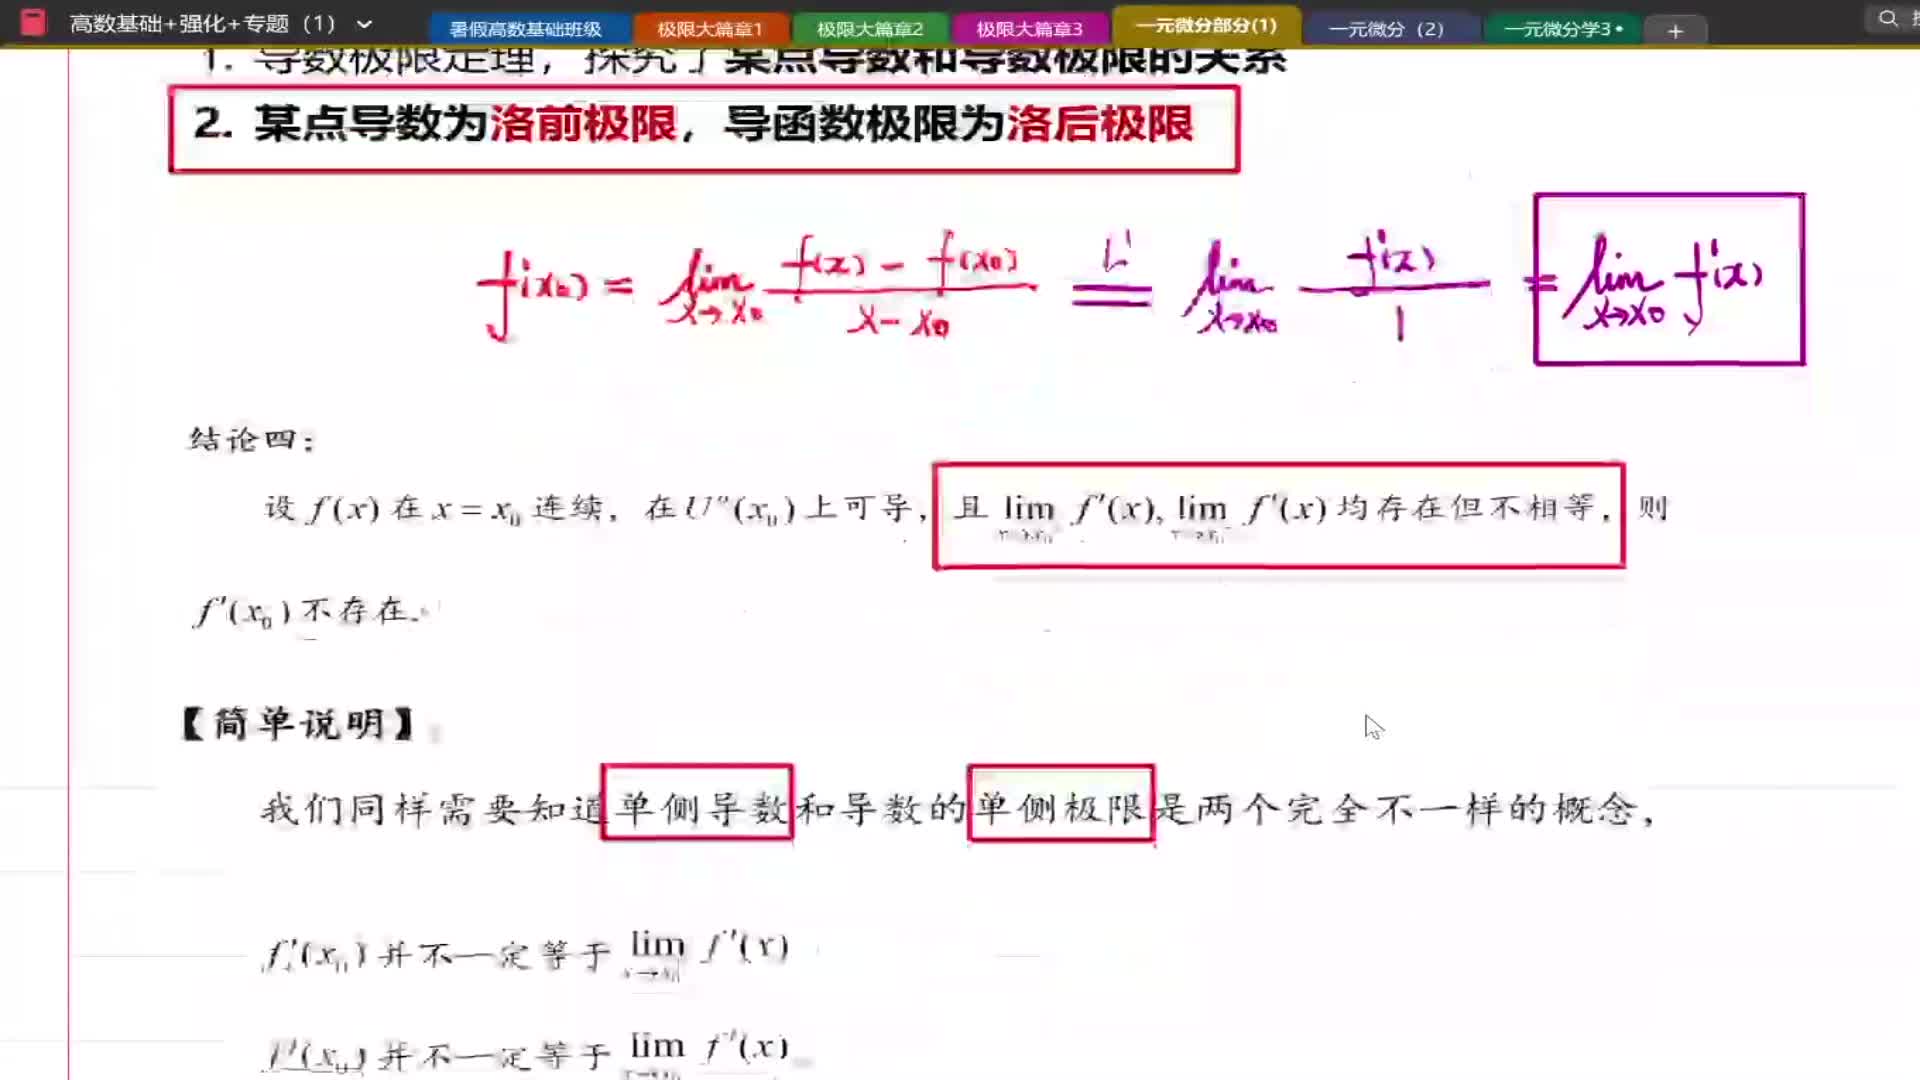 高数基础+强化+专题（1）
暑假高数基础班级
极限大篇章1
极限大篇章2
极限大篇章3
一元微分部分(1)
一元微分（2）
一元微分学3
1. 导数极限定理，探究了某点导数和导数极限的关系
2. 某点导数为洛前极限，导函数极限为洛后极限
f'(x₀) = lim x→x₀ f(x) - f(x₀) / x - x₀ = L' lim x→x₀ f'(x) / 1 = lim x→x₀ f'(x)
结论四：
设 f(x) 在 x = x₀ 连续，在 U°(x₀) 上可导，且 lim f'(x), lim f'(x) 均存在但不相等，则
f'(x₀) 不存在.
【简单说明】
我们同样需要知道单侧导数和导数的单侧极限是两个完全不一样的概念，
f'(x₀) 并不一定等于 lim f'(x)
f'(x₀) 并不一定等于 lim f'(x)